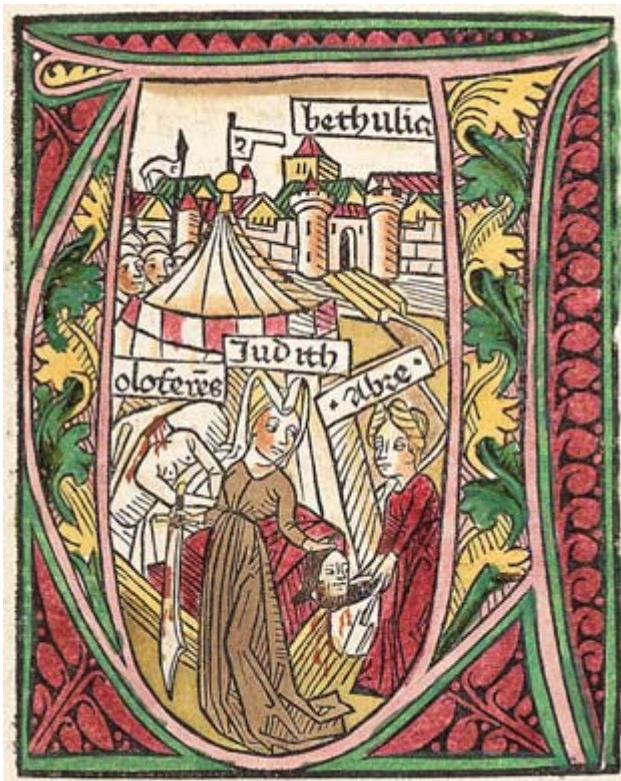 bethulia
Judith
oloferēs
· Abre ·